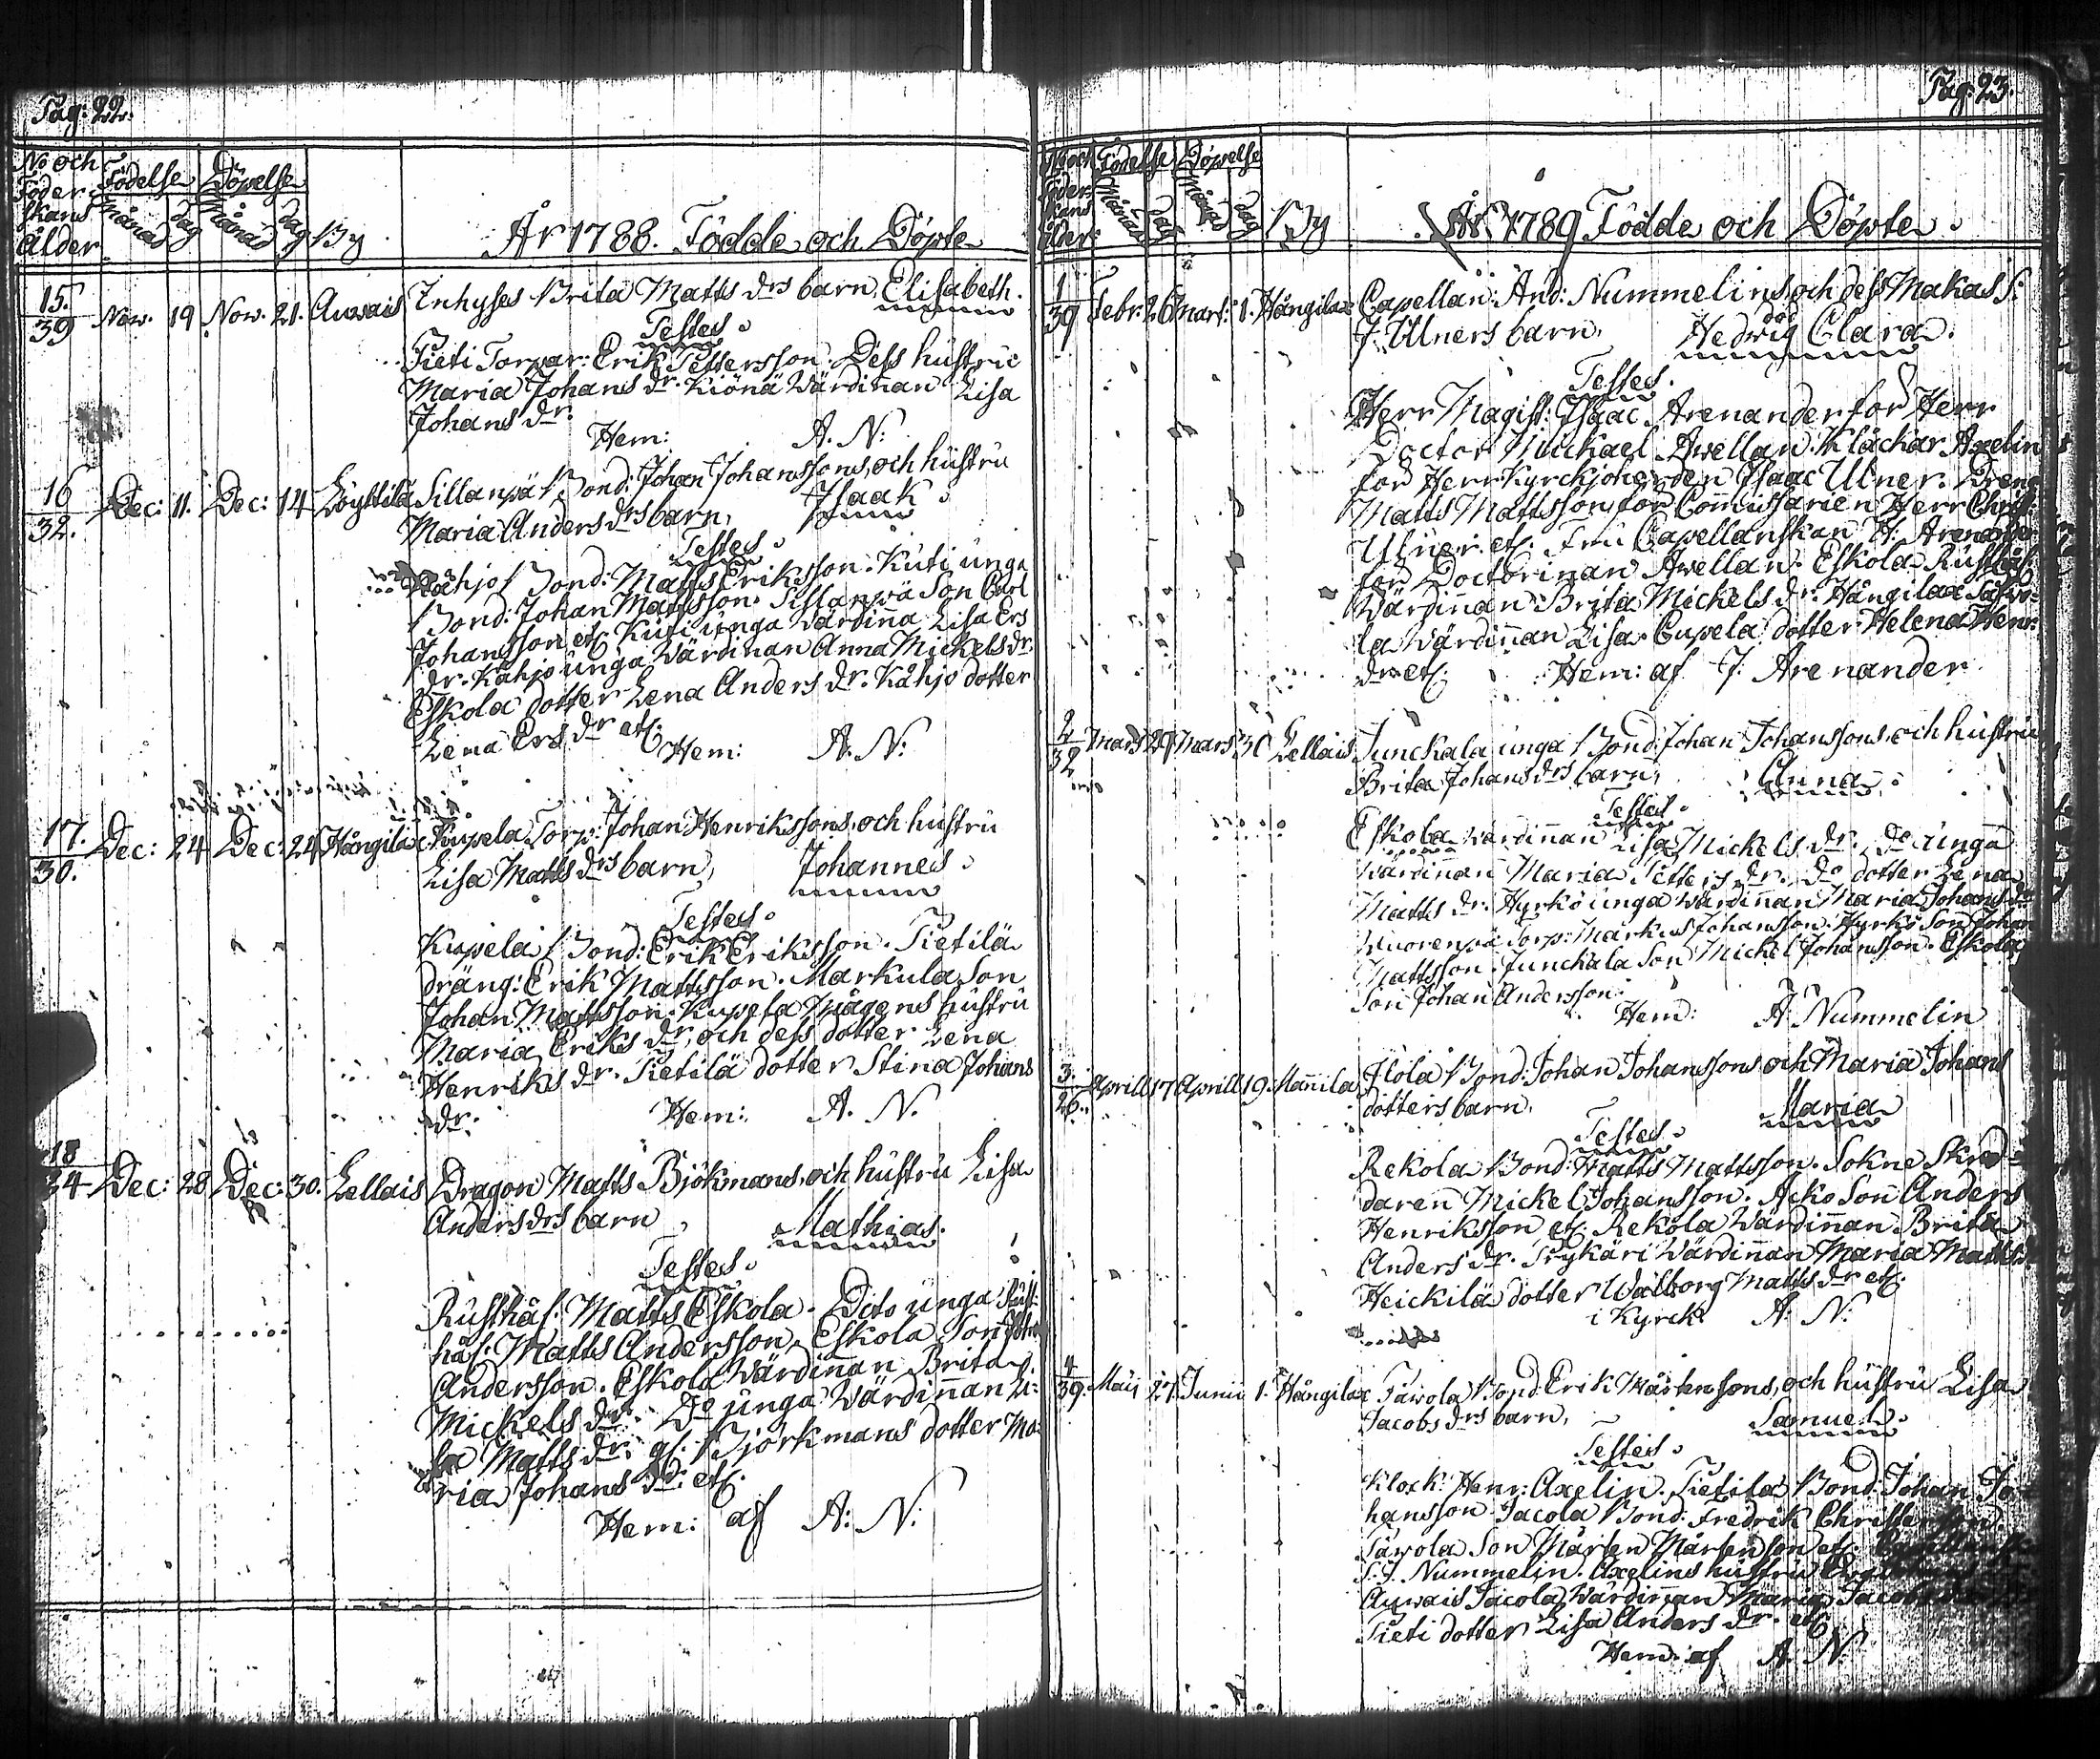 Pag: 22.
No och Föderskans Ålder
Födelse Månad dag
Döpelse Månad dag
By
År 1788. Födde och Döpte
15. 39 Nov. 19 Nov. 21. Auvais Inhyses Brita Matts drs barn, Elisabeth.
Testes.
Pieti Torpar: Erik Pettersson. Dess hustru
Maria Johans dr. Kiönä Wärdinan Lisa
Johans dr.
Hem: A. N:
16 32. Dec: 11. Dec: 14 Löyttilä Sillanpä Bond: Johan Johanssons, och hustru
Maria Anders drs barn, Isaak.
Testes.
Kåhjo Bond: Matts Eriksson. Kuti unga
Bond: Johan Mattsson. Sillanpä Son Carl
Johansson etc. Kuti unga Wärdinna Lisa Ers
dr. Kåhjo unga Wärdinan Anna Mickels dr.
Eskola dotter Lena Anders dr. Kåhjo dotter
Lena Ers dr etc.
Hem: A. N:
17. 30. Dec: 24 Dec: 24 Hångilax Kupela Torp: Johan Henrikssons, och hustru
Lisa Matts drs barn, Johannes.
Testes.
Kupela Bond: Erik Eriksson. Pietilä
dräng: Erik Mattsson. Markula Son
Johan Mattsson. Kupela Mågens hustru
Maria Eriks dr, och dess dotter Lena
Henriks dr. Pietilä dotter Stina Johans
dr. Hem: A. N.
18 34 Dec: 28 Dec: 30. Lellais Dragon Matts Björkmans, och hustru Lisa
Anders drs barn, Mathias.
Testes.
Rusthål: Matts Eskola. Dito unga Rust-
hål: Matts Andersson, Eskola Son Johan
Andersson. Eskola Wärdinan Brita
Mickels dr. Do unga Wärdinnan Li-
sa Matts dr. gl. Björkmans dotter Ma-
ria Johans dr: etc.
Hem: af A: N:
Pag: 23.
No och Föderskans Ålder
Födelse Månad dag
Döpelse Månad dag
By
År 1789 Födde och Döpte.
1 39 Febr: 26 Mart: 1. Hångilax Capellan: And: Nummelins, och dess Makas S:
J: Ulners barn, död Hedwig Clara.
Testes.
Herr Magist: Isaac Arenander for Herr
Doctor Mickael Awellan. Klåckar Axelin
for Herr Kyrckjoherden Isaac Ulner. Dreng
Matts Mattsson for Commissarien Herr Christ:
Ulner. etc. Fru Capellanskan H: Arenander
for Doctorinan Awellan. Eskola Rusthål:
Wärdinnan Brita Mickels dr. Hångilax Säfwo-
la Wärdinnan Lisa. Cupela dotter Helena Henr:
dr. etc. Hem: af J: Arenander
2 32 Mars 29 Mars 30 Lellais Junckala unga Bond: Johan Johanssons, och hustru
Brita Johans drs barn, Anna.
Testes.
Eskola Wärdinnan Lisa Mickels dr. Do unga
Wärdinnan Maria Petters dr. Do dotter Lena
Matts dr. Hyrkö unga Wärdinnan Maria Johans dr
Wuorenpä Torp: Markus Johansson. Hyrkö Son Johan
Mattsson. Junckala Son Mickel Johansson. Eskola
Son Johan Andersson.
Hem: A Nummelin
3. 26. Aprill 17 Aprill 19. Mannila Ilola Bond: Johan Johanssons och Maria Johans
dotters barn. Maria
Testes.
Rekola Bond: Matts Mattsson. Sokne Skrad-
daren Mickel Johansson. Acko Son Anders
Henriksson etc. Rekola Wärdinnan Brita
Anders dr. Prykäri Wärdinnan Maria Matts
Heickilä dotter Walborg Matts dr etc.
i Kyrck: A: N:
4 39. Maij 27. Junii 1. Hångilax Säwola Bond: Erik Mårtensons, och hustru Lisa
Jacobs drs barn, Samuel.
Testes.
Klock: Henr: Axelin. Pietila Bond: Johan Jo-
hansson. Jacola Bond: Fredrik Christersson.
Säwola Son Mårten Mårtensson etc.
S: J. Nummelin. Axelins hustru
Auwais Jacola Wärdinnan Maria Jacobs
Pieti dotter Lisa Anders dr. etc.
Hem: af A: N: